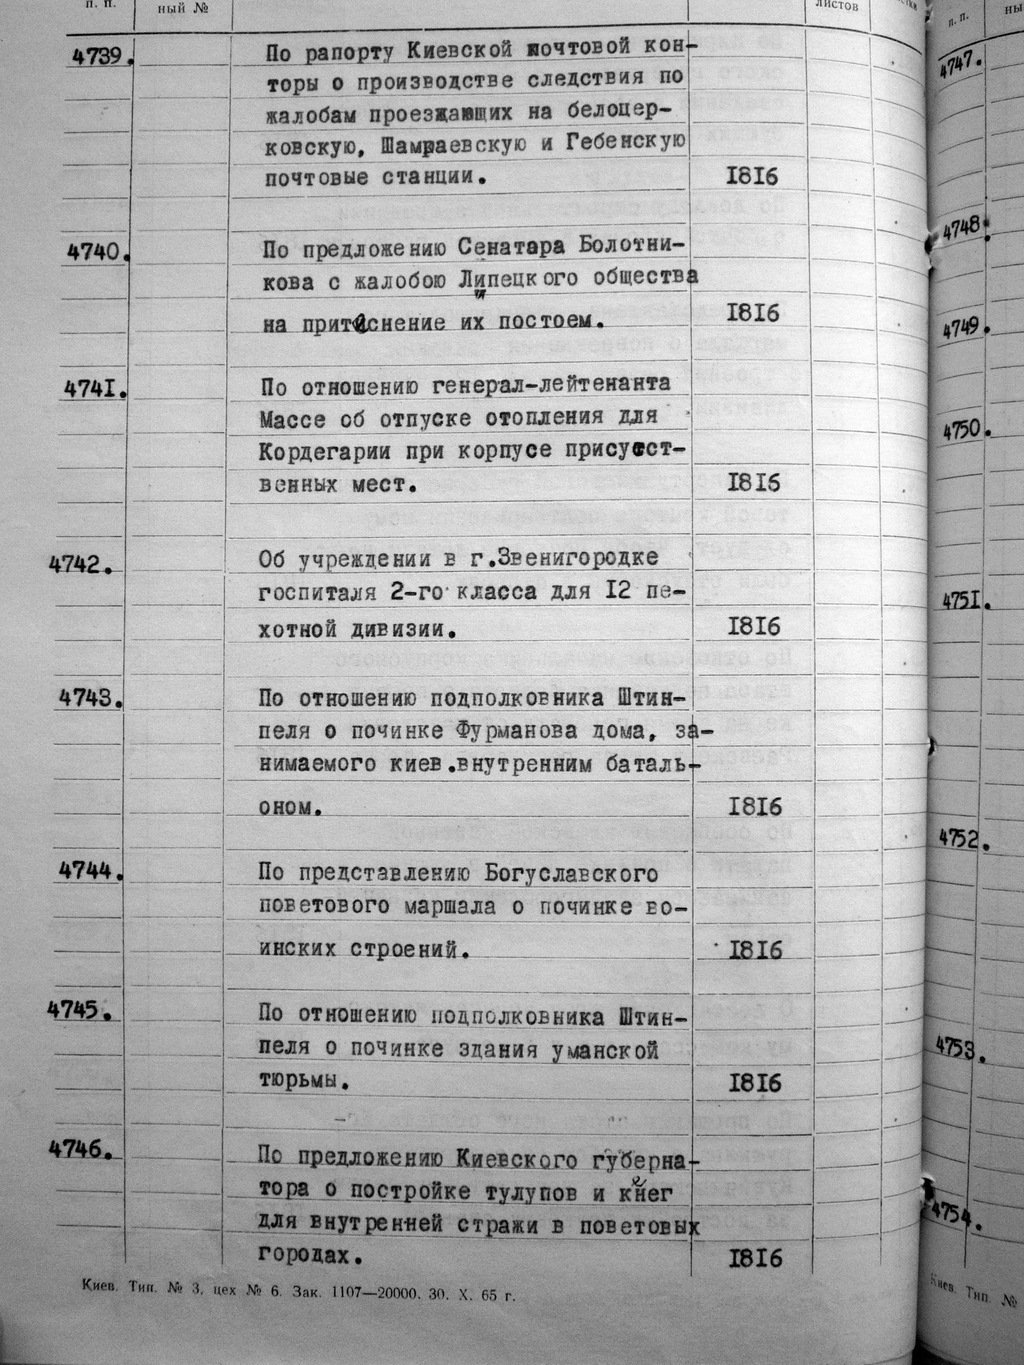 п. п.
ный №
листов
4739. По рапорту Киевской почтовой кон-
торы о производстве следствия по
жалобам проезжающих на белоцер-
ковскую, Шамраевскую и Гебенскую
почтовые станции. 1816
4740. По предложению Сенатара Болотни-
кова с жалобою Липецкого общества
на притиснение их постоем. 1816
4741. По отношению генерал-лейтенанта
Массе об отпуске отопления для
Кордегарии при корпусе присутст-
венных мест. 1816
4742. Об учреждении в г.Звенигородке
госпиталя 2-го класса для 12 пе-
хотной дивизии. 1816
4743. По отношению подполковника Штин-
пеля о починке Фурманова дома, за-
нимаемого киев.внутренним баталь-
оном. 1816
4744. По представлению Богуславского
поветового маршала о починке во-
инских строений. 1816
4745. По отношению подполковника Штин-
пеля о починке здания уманской
тюрьмы. 1816
4746. По предложению Киевского губерна-
тора о постройке тулупов и кнег
для внутренней стражи в поветовых
городах. 1816
Киев. Тип. № 3, цех № 6. Зак. 1107—20000. 30. X. 65 г.
п. п.
ны
4747.
4748.
4749.
4750.
4751.
4752.
4753.
4754.
Киев. Тип. №